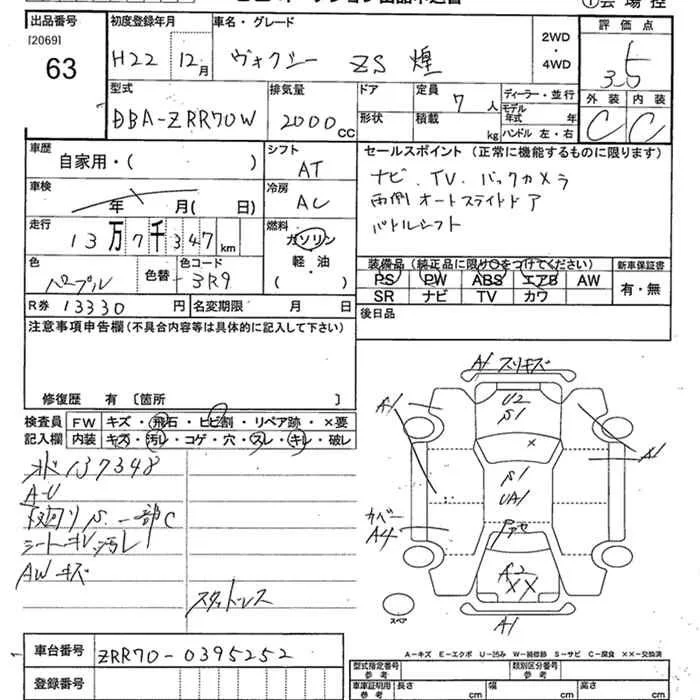 出品番号 初度登録年月 車名・グレード 評価点
[2069]
63
H22 12月 ヴォクシー ZS 煌 2WD・4WD 3.5
型式 排気量 ドア 定員 7人 ディーラー・並行 外装 内装
DBA-ZRR70W 2000CC 形状 積載 kg モデル年式 年 C C
ハンドル 左・右
車歴 シフト セールスポイント (正常に機能するものに限ります)
自家用・( ) AT ナビ、TV、バックカメラ
車検 冷房 両側オートスライドドア
年 月( 日) AC パドルシフト
走行 燃料
13万7千347km ガソリン
色 色替 色コード 軽・油 装備品 (純正品に限り○をつけてください) 新車保証書
パープル 3R9 ( ) PS PW ABS エアB AW 有・無
R券 13330円 名変期限 月 日 SR ナビ TV カワ
注意事項申告欄(不具合内容等は具体的に記入して下さい) 後日品
修復歴 有 〔箇所 〕
検査員 FW キズ・飛石・ヒビ割・リペア跡・×要
記入欄 内装 キズ・汚レ・コゲ・穴・スレ・キレ・破レ
メ137348
A-U
下回りS 一部C
シートキレ汚レ
AWキズ
スタッドレス
A1 スリキズ
U2
S1
A1
A1
×
S1
UA1
カバー
A4
A2
××
スペア
A1
A-キズ E-エクボ U-凹み W-補修跡 S-サビ C-腐食 ××-交換済
車台番号 ZRR70-0395252
登録番号
型式指定番号 参考 類別区分番号 参考
車庫証明用 参考 長さ cm 幅 cm 高さ cm